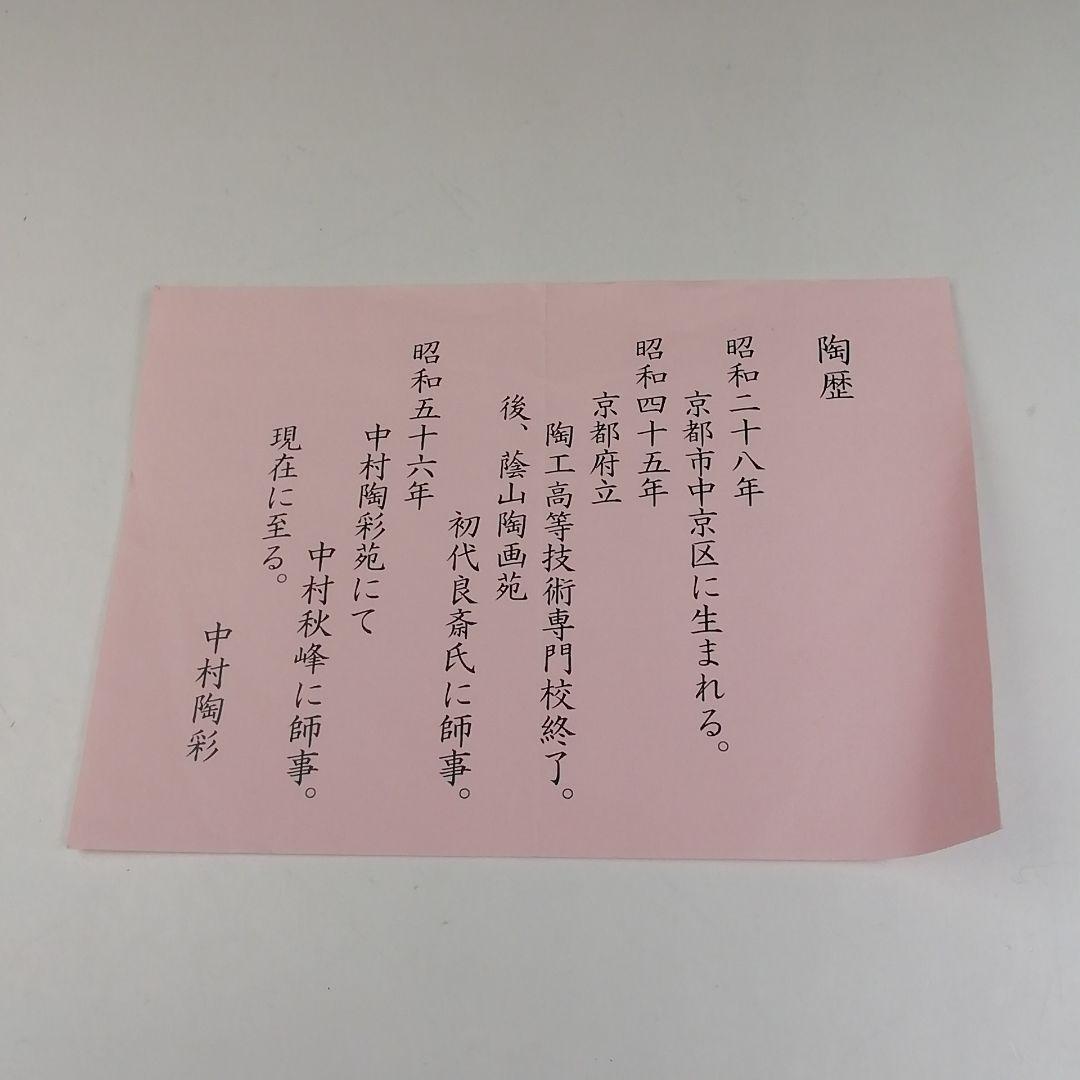 陶歴
昭和二十八年
京都市中京区に生まれる。
昭和四十五年
京都府立
陶工高等技術専門校終了。
後、蔭山陶画苑
初代良斎氏に師事。
昭和五十六年
中村陶彩苑にて
中村秋峰に師事。
現在に至る。
中村陶彩